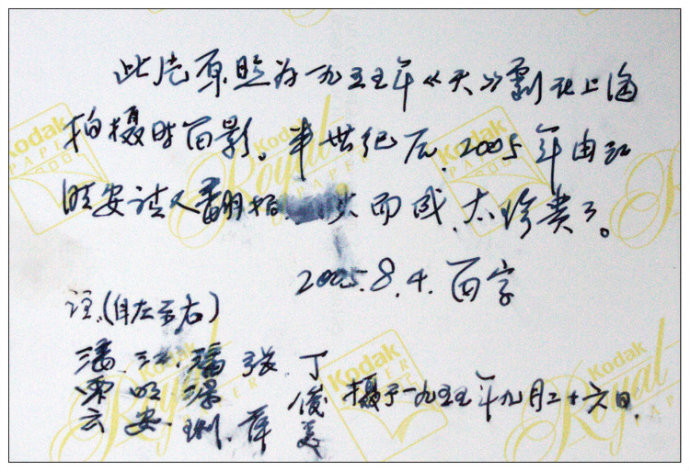 此片原照为一九五五年《天》剧在上海
拍摄时留影。半世纪后,2005年由江
明安请人翻拍 而成,太珍贵了。
2005.8.4. 留字
注:(自左至右)
潘 云
江明安
潘璟琍
张萍
丁俊美
摄于一九五五年九月二十六日.
Kodak
Royal
PAPER
Kodak
Royal
PAPER
Kodak
Royal